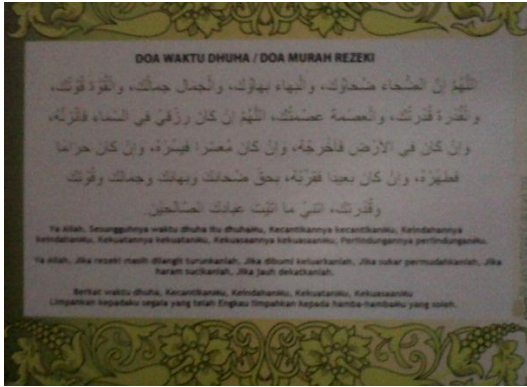 DOA WAKTU DHUHA / DOA MURAH REZEKI
اللَّهُمَّ إِنَّ الضُّحَاءَ ضُحَاؤُكَ، وَالْبَهَاءَ بَهَاؤُكَ، وَالْجَمَالَ جَمَالُكَ، وَالْقُوَّةَ قُوَّتُكَ،
وَالْقُدْرَةَ قُدْرَتُكَ، وَالْعِصْمَةَ عِصْمَتُكَ، اللَّهُمَّ إِنْ كَانَ رِزْقِيْ فِي السَّمَاءِ فَأَنْزِلْهُ،
وَإِنْ كَانَ فِي الْأَرْضِ فَأَخْرِجْهُ، وَإِنْ كَانَ مُعَسَّرًا فَيَسِّرْهُ، وَإِنْ كَانَ حَرَامًا
فَطَهِّرْهُ، وَإِنْ كَانَ بَعِيدًا فَقَرِّبْهُ، بِحَقِّ ضُحَائِكَ وَبَهَائِكَ وَجَمَالِكَ وَقُوَّتِكَ
وَقُدْرَتِكَ، آتِنِيْ مَا أَتَيْتَ عِبَادَكَ الصَّالِحِيْنَ.
Ya Allah, Sesungguhnya waktu dhuha itu dhuhaMu, Kecantikannya kecantikanMu, Keindahannya
keindahanMu, Kekuatannya kekuatanMu, Kekuasaannya kekuasaanMu, Perlindungannya perlindunganMu.
Ya Allah, Jika rezeki masih dilangit turunkanlah, Jika dibumi keluarkanlah, Jika sukar permudahkanlah, Jika
haram sucikanlah, Jika jauh dekatkanlah.
Berkat waktu dhuha, KecantikanMu, KeindahanMu, KekuatanMu, KekuasaanMu
Limpahkan kepadaku segala yang telah Engkau limpahkan kepada hamba-hambaMu yang soleh.